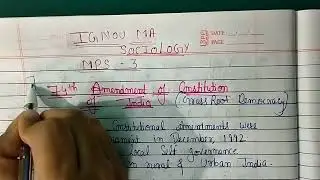 IGNOU MA
SOCIOLOGY
MPS - 3
DATE
PAGE
74th Amendment of Constitution
of India (Grass Root Democracy)
Constitutional amendments were
in December, 1992
Local Self governance
rural & Urban India.